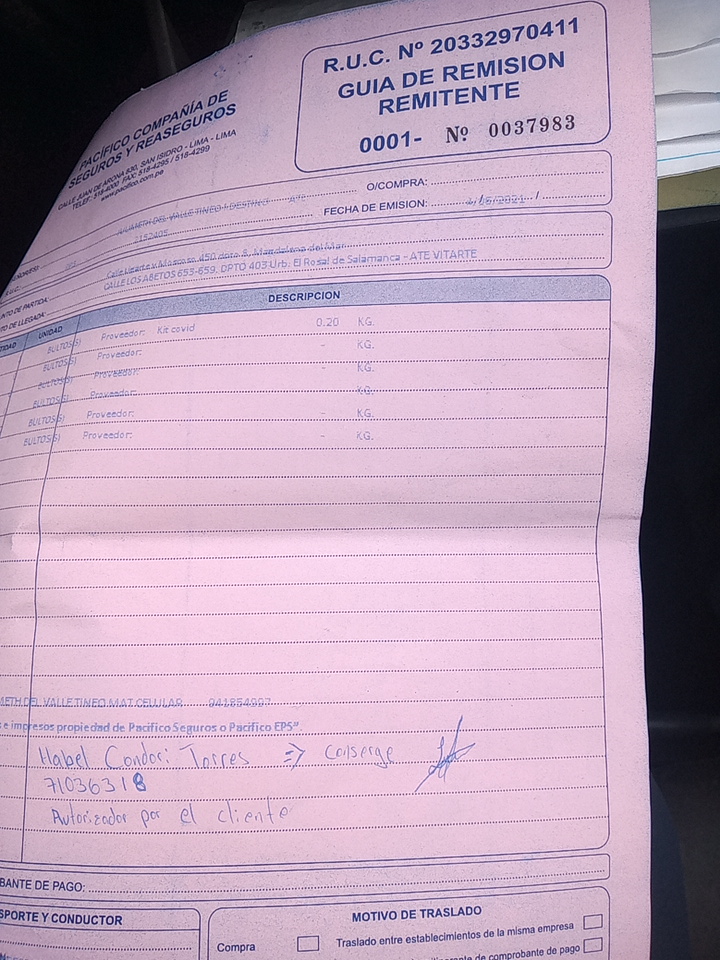 PACÍFICO COMPAÑÍA DE
SEGUROS Y REASEGUROS
CALLE JUAN DE ARONA 830, SAN ISIDRO - LIMA - LIMA
TELEF: 518-4000 FAX: 518-4295 / 518-4299
www.pacifico.com.pe
R.U.C. Nº 20332970411
GUIA DE REMISION
REMITENTE
0001- Nº 0037983
DEL VALLE TINEO DESTINO
O/COMPRA:
FECHA DE EMISION:
R.U.C.
NTO DE PARTIDA: 450 dpto 8, Magdalena del Mar
TO DE LLEGADA: CALLE LOS ABETOS 653-659, DPTO 403 Urb. El Rosal de Salamanca - ATE VITARTE
TIDAD UNIDAD DESCRIPCION
BULTOS(S) Proveedor: Kit covid 0.20 KG.
BULTOS(S) Proveedor: - KG.
BULTOS(S) Proveedor: - KG.
BULTOS(S) Proveedor: KG.
BULTOS(S) Proveedor: - KG.
BULTOS(S) Proveedor: - KG.
METH DEL VALLE TINEO MAT CELULAR
e impresos propiedad de Pacifico Seguros o Pacifico EPS"
Habel Condori Torres => Conserge
71036318
Autorizador por el cliente
BANTE DE PAGO:
SPORTE Y CONDUCTOR
MOTIVO DE TRASLADO
Compra
Traslado entre establecimientos de la misma empresa
de comprobante de pago